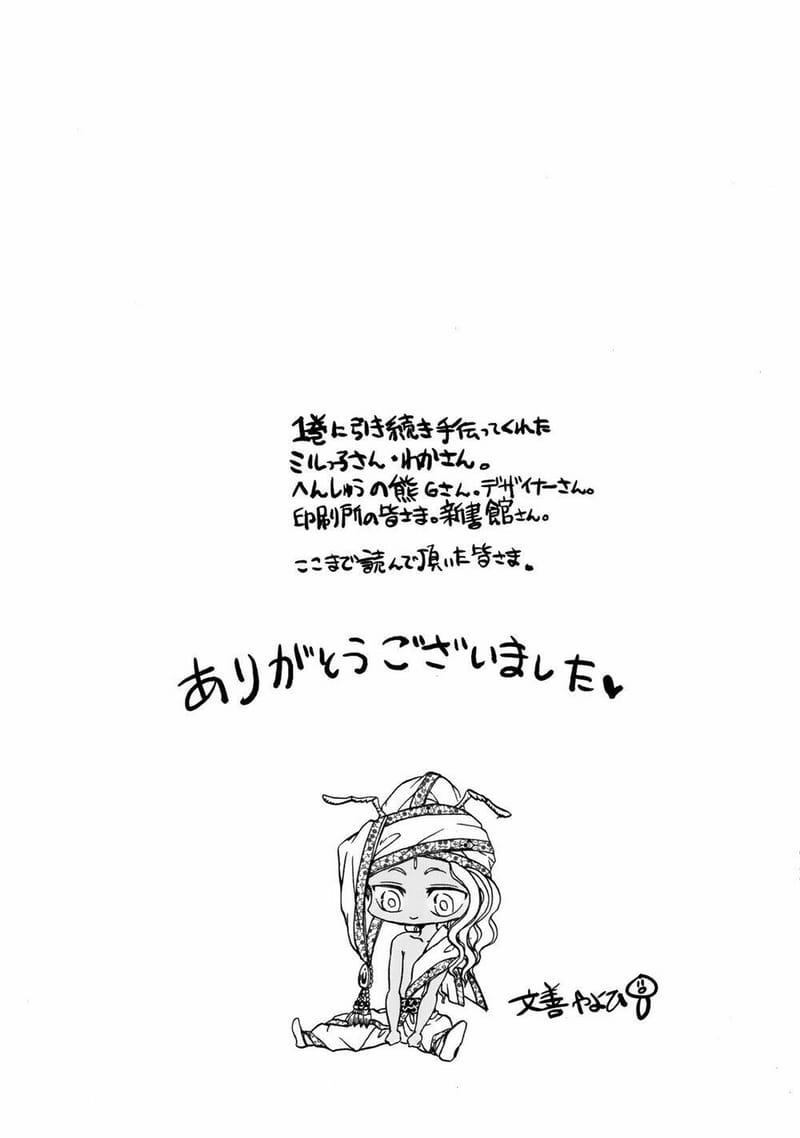 1巻に引き続き手伝ってくれた
ミルっ子さん・わかさん。
へんしゅうの熊Gさん。デザイナーさん。
印刷所の皆さま。新書館さん。
ここまで読んで頂いた皆さま。
ありがとうございました♥
文善やよひ